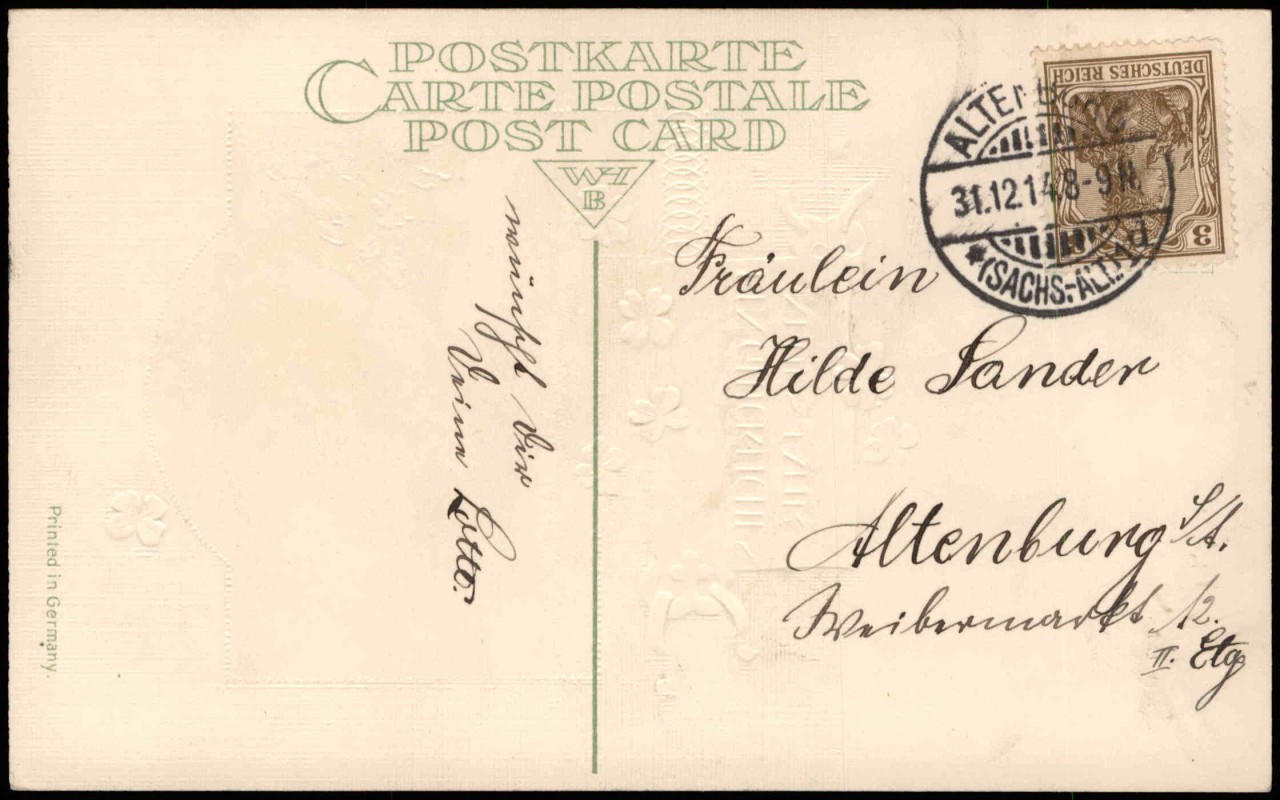 POSTKARTE
CARTE POSTALE
POST CARD
WH
B
DEUTSCHES REICH
3
ALTENBURG
31.12.14 8-9 N.
* (SACHS.-ALT.) d
wünscht Dir
Deine Lotte.
Fräulein
Hilde Sander
Altenburg S/A.
Weibermarkt 12.
II. Etg
Printed in Germany.